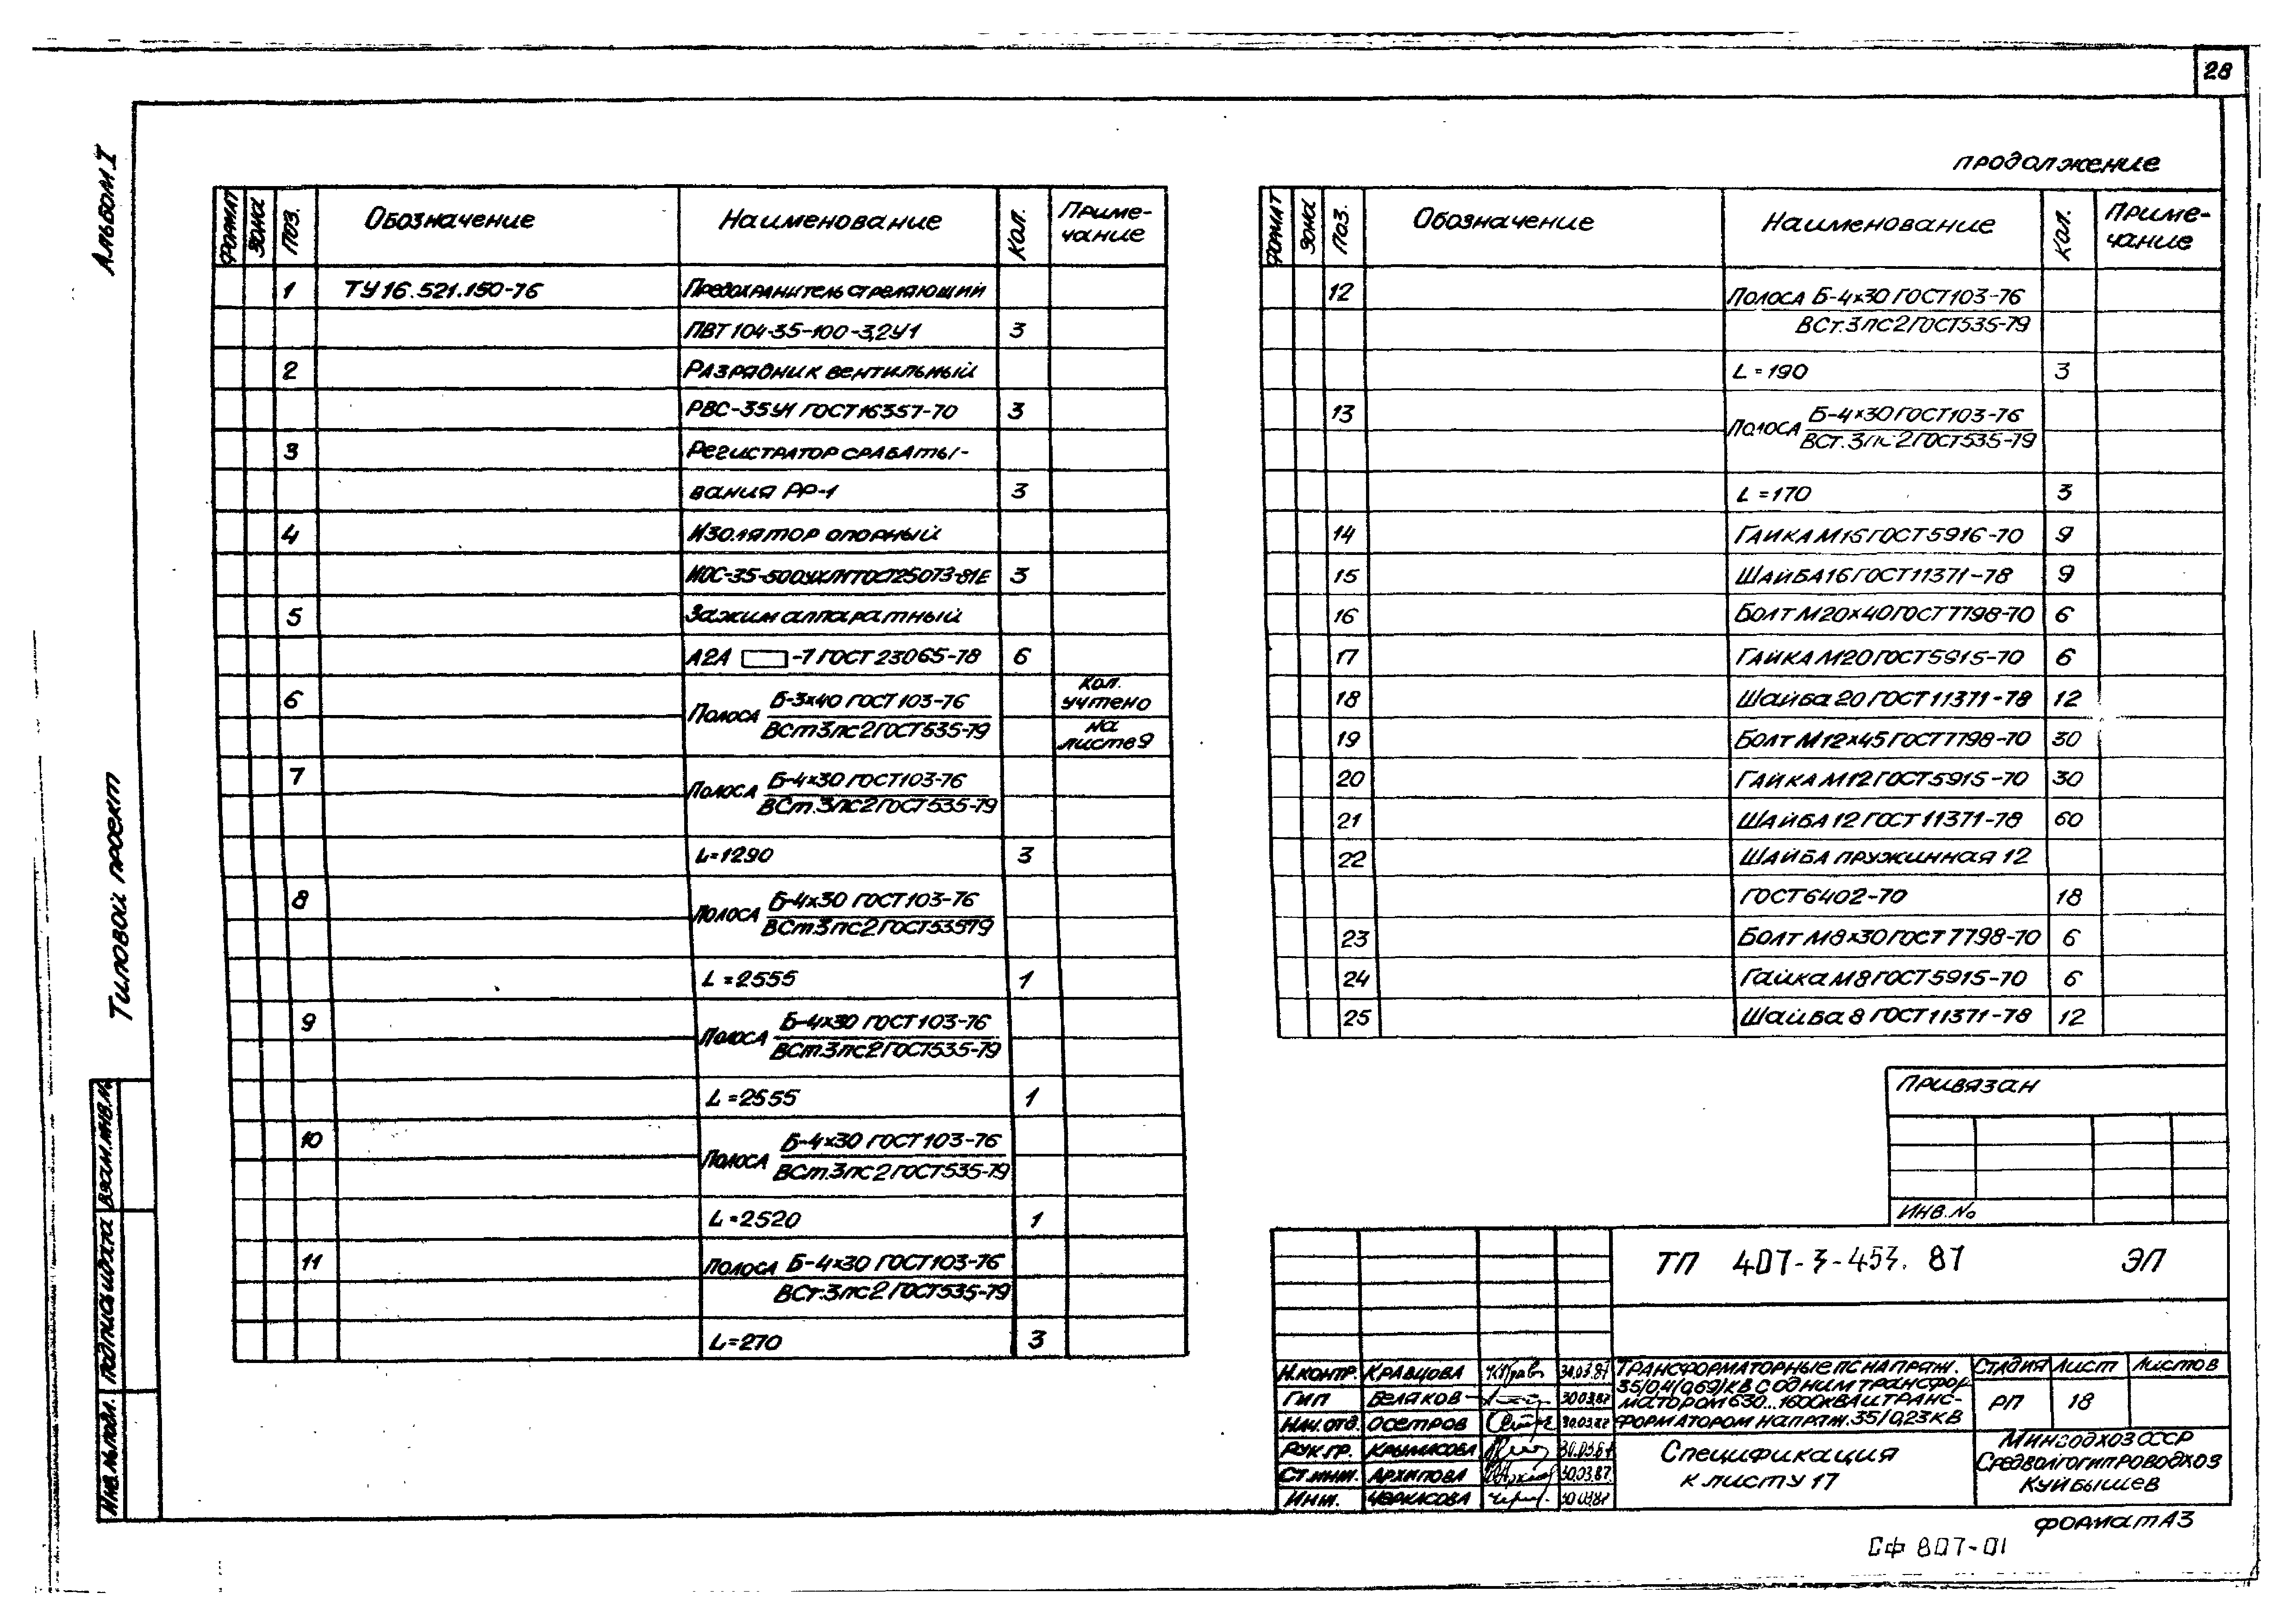 28
Альбом I
Типовой проект
Взам.инв.№
Подпись и дата
Инв.№ подл.
Формат Зона Поз. Обозначение Наименование Кол. Приме-
чание
1 ТУ16.521.150-76 Предохранитель стреляющий
ПВТ104-35-100-3,2У1 3
2 Разрядник вентильный
РВС-35У1 ГОСТ16357-70 3
3 Регистратор срабаты-
вания РР-1 3
4 Изолятор опорный
ИОС-35-500УХЛ1ГОСТ25073-81Е 3
5 Зажим аппаратный
А2А -7 ГОСТ 23065-78 6
6 Полоса Б-3х40 ГОСТ103-76
ВСт3пс2ГОСТ535-79
Кол.
учтено
на
листе9
7 Полоса Б-4х30 ГОСТ103-76
ВСт.3пс2ГОСТ535-79
L=1290 3
8 Полоса Б-4х30 ГОСТ103-76
ВСт3пс2ГОСТ53579
L=2555 1
9 Полоса Б-4х30 ГОСТ103-76
ВСт.3пс2ГОСТ535-79
L=2555 1
10 Полоса Б-4х30 ГОСТ103-76
ВСт.3пс2ГОСТ535-79
L=2520 1
11 Полоса Б-4х30 ГОСТ103-76
ВСт.3пс2ГОСТ535-79
L=270 3
продолжение
Формат Зона Поз. Обозначение Наименование Кол. Приме-
чание
12 Полоса Б-4х30ГОСТ103-76
ВСт.3пс2ГОСТ535-79
L=190 3
13 Полоса Б-4х30ГОСТ103-76
ВСт.3пс2ГОСТ535-79
L=170 3
14 Гайка М16ГОСТ5916-70 9
15 Шайба16ГОСТ11371-78 9
16 Болт М20х40ГОСТ7798-70 6
17 Гайка М20ГОСТ5915-70 6
18 Шайба 20 ГОСТ11371-78 12
19 Болт М12х45ГОСТ7798-70 30
20 Гайка М12ГОСТ5915-70 30
21 Шайба 12 ГОСТ11371-78 60
22 Шайба пружинная 12
ГОСТ6402-70 18
23 Болт М8х30ГОСТ7798-70 6
24 Гайка М8ГОСТ5915-70 6
25 Шайба 8 ГОСТ11371-78 12
Привязан
Инв.№
ТП 407-3-453.87 ЭП
Н.контр. Кравцова 30.03.87
ГИП Беляков 30.03.87
Нач.отд. Осетров 30.03.87
Рук.гр. Крымасова 30.03.87
Ст.инж. Архипова 30.03.87
Инж. Черкасова 30.03.87
Трансформаторные ПС напряж.
35/0,4(0,69)кВ с одним трансфор
матором 630...1600кВА и транс-
форматором напряж.35/0,23кВ
Стадия Лист Листов
РП 18
Спецификация
к листу 17
Минводхоз СССР
Средволгогипроводхоз
Куйбышев
Формат А3
СФ 807-01